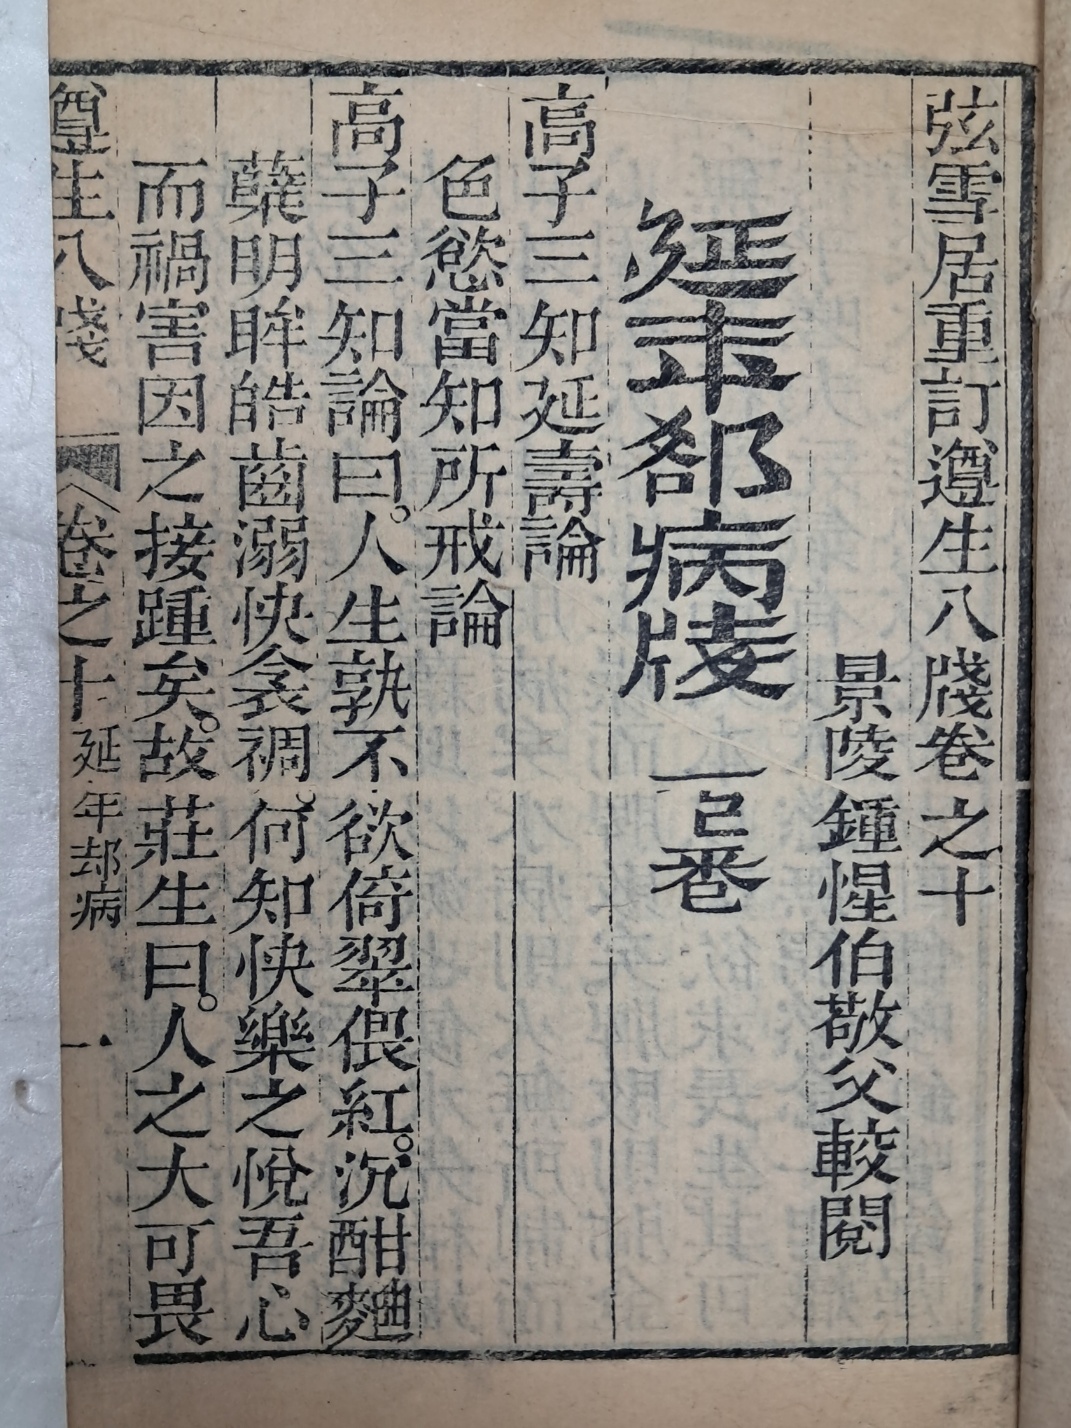 弦雪居重訂遵生八牋卷之十
景陵鍾惺伯敬父較閱
延年郤病牋 一已卷
高子三知延壽論
色慾當知所戒論
高子三知論曰。人生孰不欲倚翠偎紅。沉酣麯
糵明眸皓齒溺快衾裯。何知快樂之悅吾心
而禍害因之接踵矣。故莊生曰。人之大可畏
遵生八牋 卷之十 延年却病 一